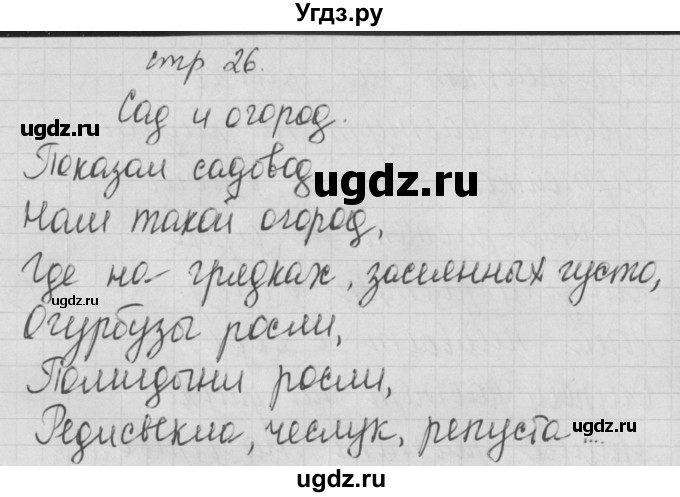 Угдз.ру
стр 26.
Сад и огород.
ugdz.ru
ugdz.ru
Показал садовод
ugdz.ru
Нам такой огород,
Где на грядках, засеянных густо,
ugdz.ru
Огурбузы росли,
ugdz.ru
Помидыни росли,
Редисвекла, чеслук, репуста ...
ugdz.ru
ugdz.ru
ugdz.ru